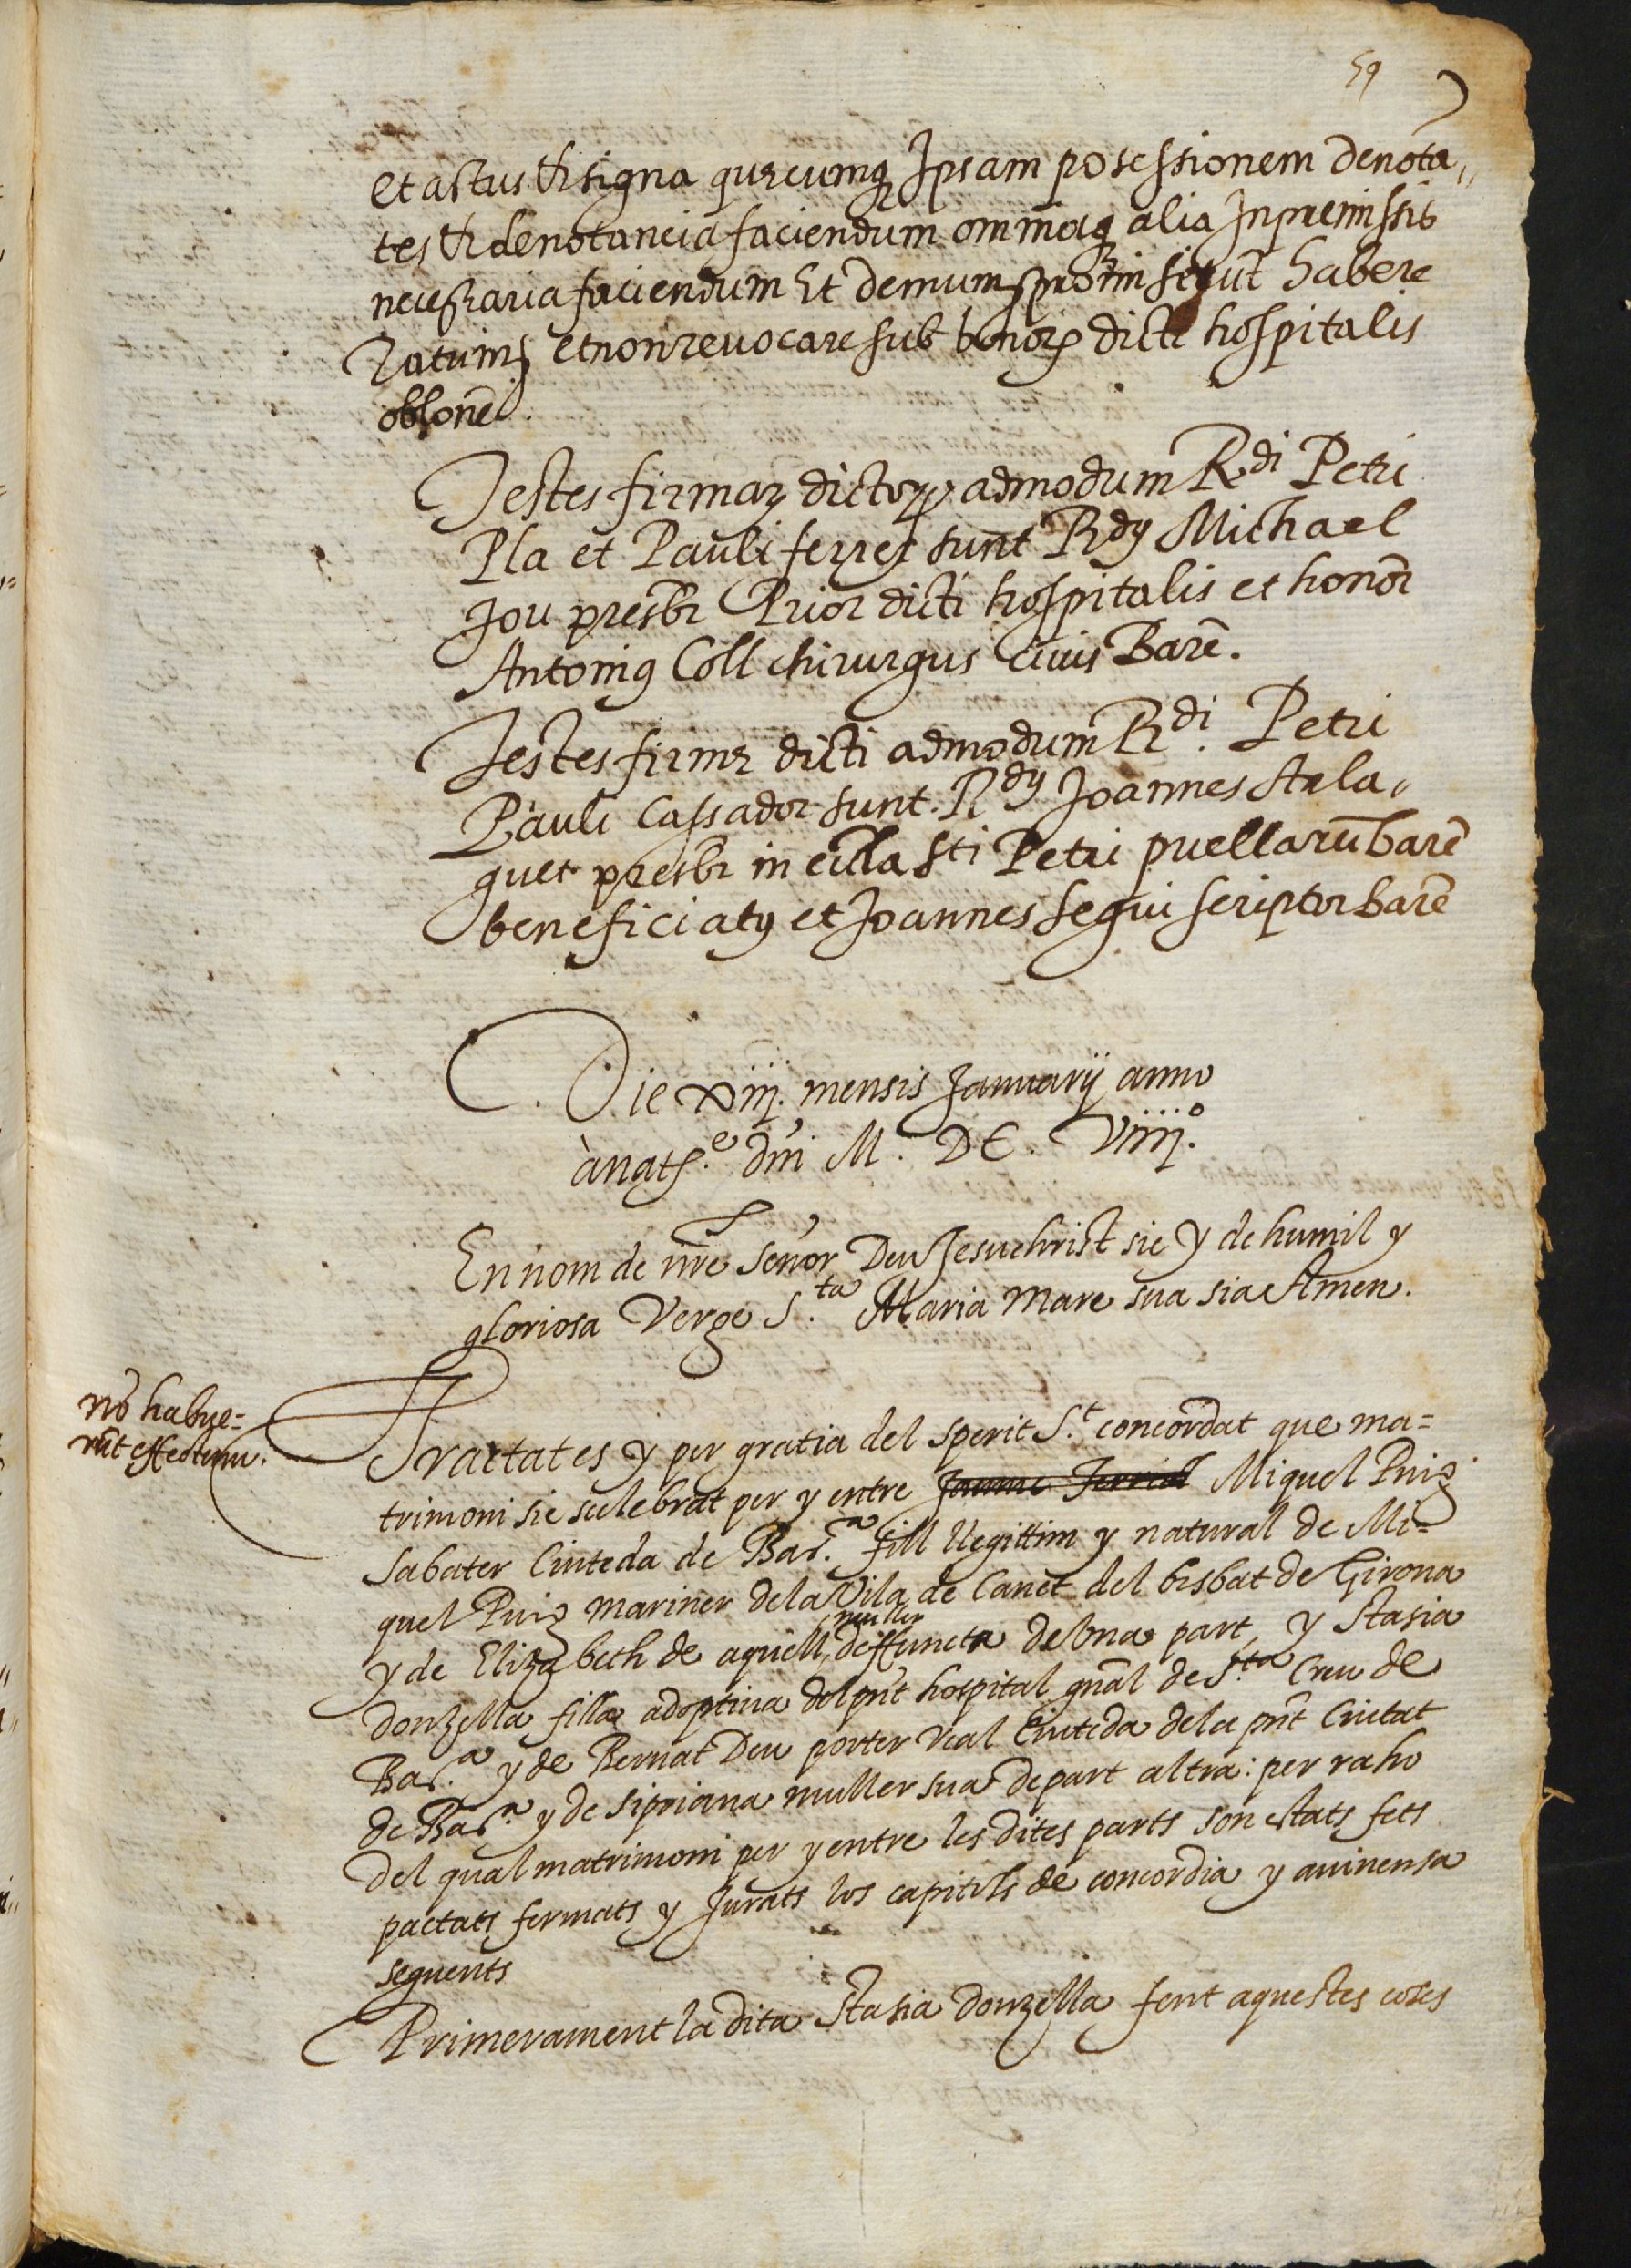 59
et actus et signa quecumq Ipsam possessionem denota„
tes et denotancia faciendum omniaq alia In premissis
necessaria faciendum Et demum habere
ratum et non revocare sub bonorum dicti hospitalis
oblone.
Testes firmar dictorum admodum Rdi Petri
Pla et Pauli ferrer sunt Rdus Michael
Jou presbr Prior dicti hospitalis et honor
Antonius Coll chirurgus civis Barñ.
Testes firme dicti admodum Rdi. Petri
Pauli Cassador sunt. Rdus Joannes Arla„
guet presbr in eccla Sti Petri puellarũ barñ
beneficiatus et Joannes Segui scriptor barñ
Die xiiij. mensis Januarij anno
à natte. Dñi M. DC. Viiij.º
En nom de nre Señor Deu Jesuchrist sie y de humil y
gloriosa Verge S.ta Maria Mare sua sia Amen.
nõ habue=
rũt effectum.
Tractat es y per gratia del sperit S.t concordat que ma=
trimoni sie selebrat per y entre Jaume Ferrer Miquel Puig
Sabater Ciuteda de Bar.a fill llegittim y natural de Mi=
quel Puig mariner de la Vila de Canet del bisbat de Girona
y de Elizabeth de aquell muller deffuncta de Una part, y Stasia
donzella filla adoptiua del pñt hospital gñal de S.ta Creu de
Bar.a y de Bernat Deu porter real Ciuteda dela pñt Ciutat
de Bar.a y de Sipriana muller sua de part altra: per raho
del qual matrimoni per y entre les dites parts son estats fets
pactats fermats y Jurats los capitols de concordia y auinensa
seguents
Primerament la dita Stasia donzella fent aquestes coses